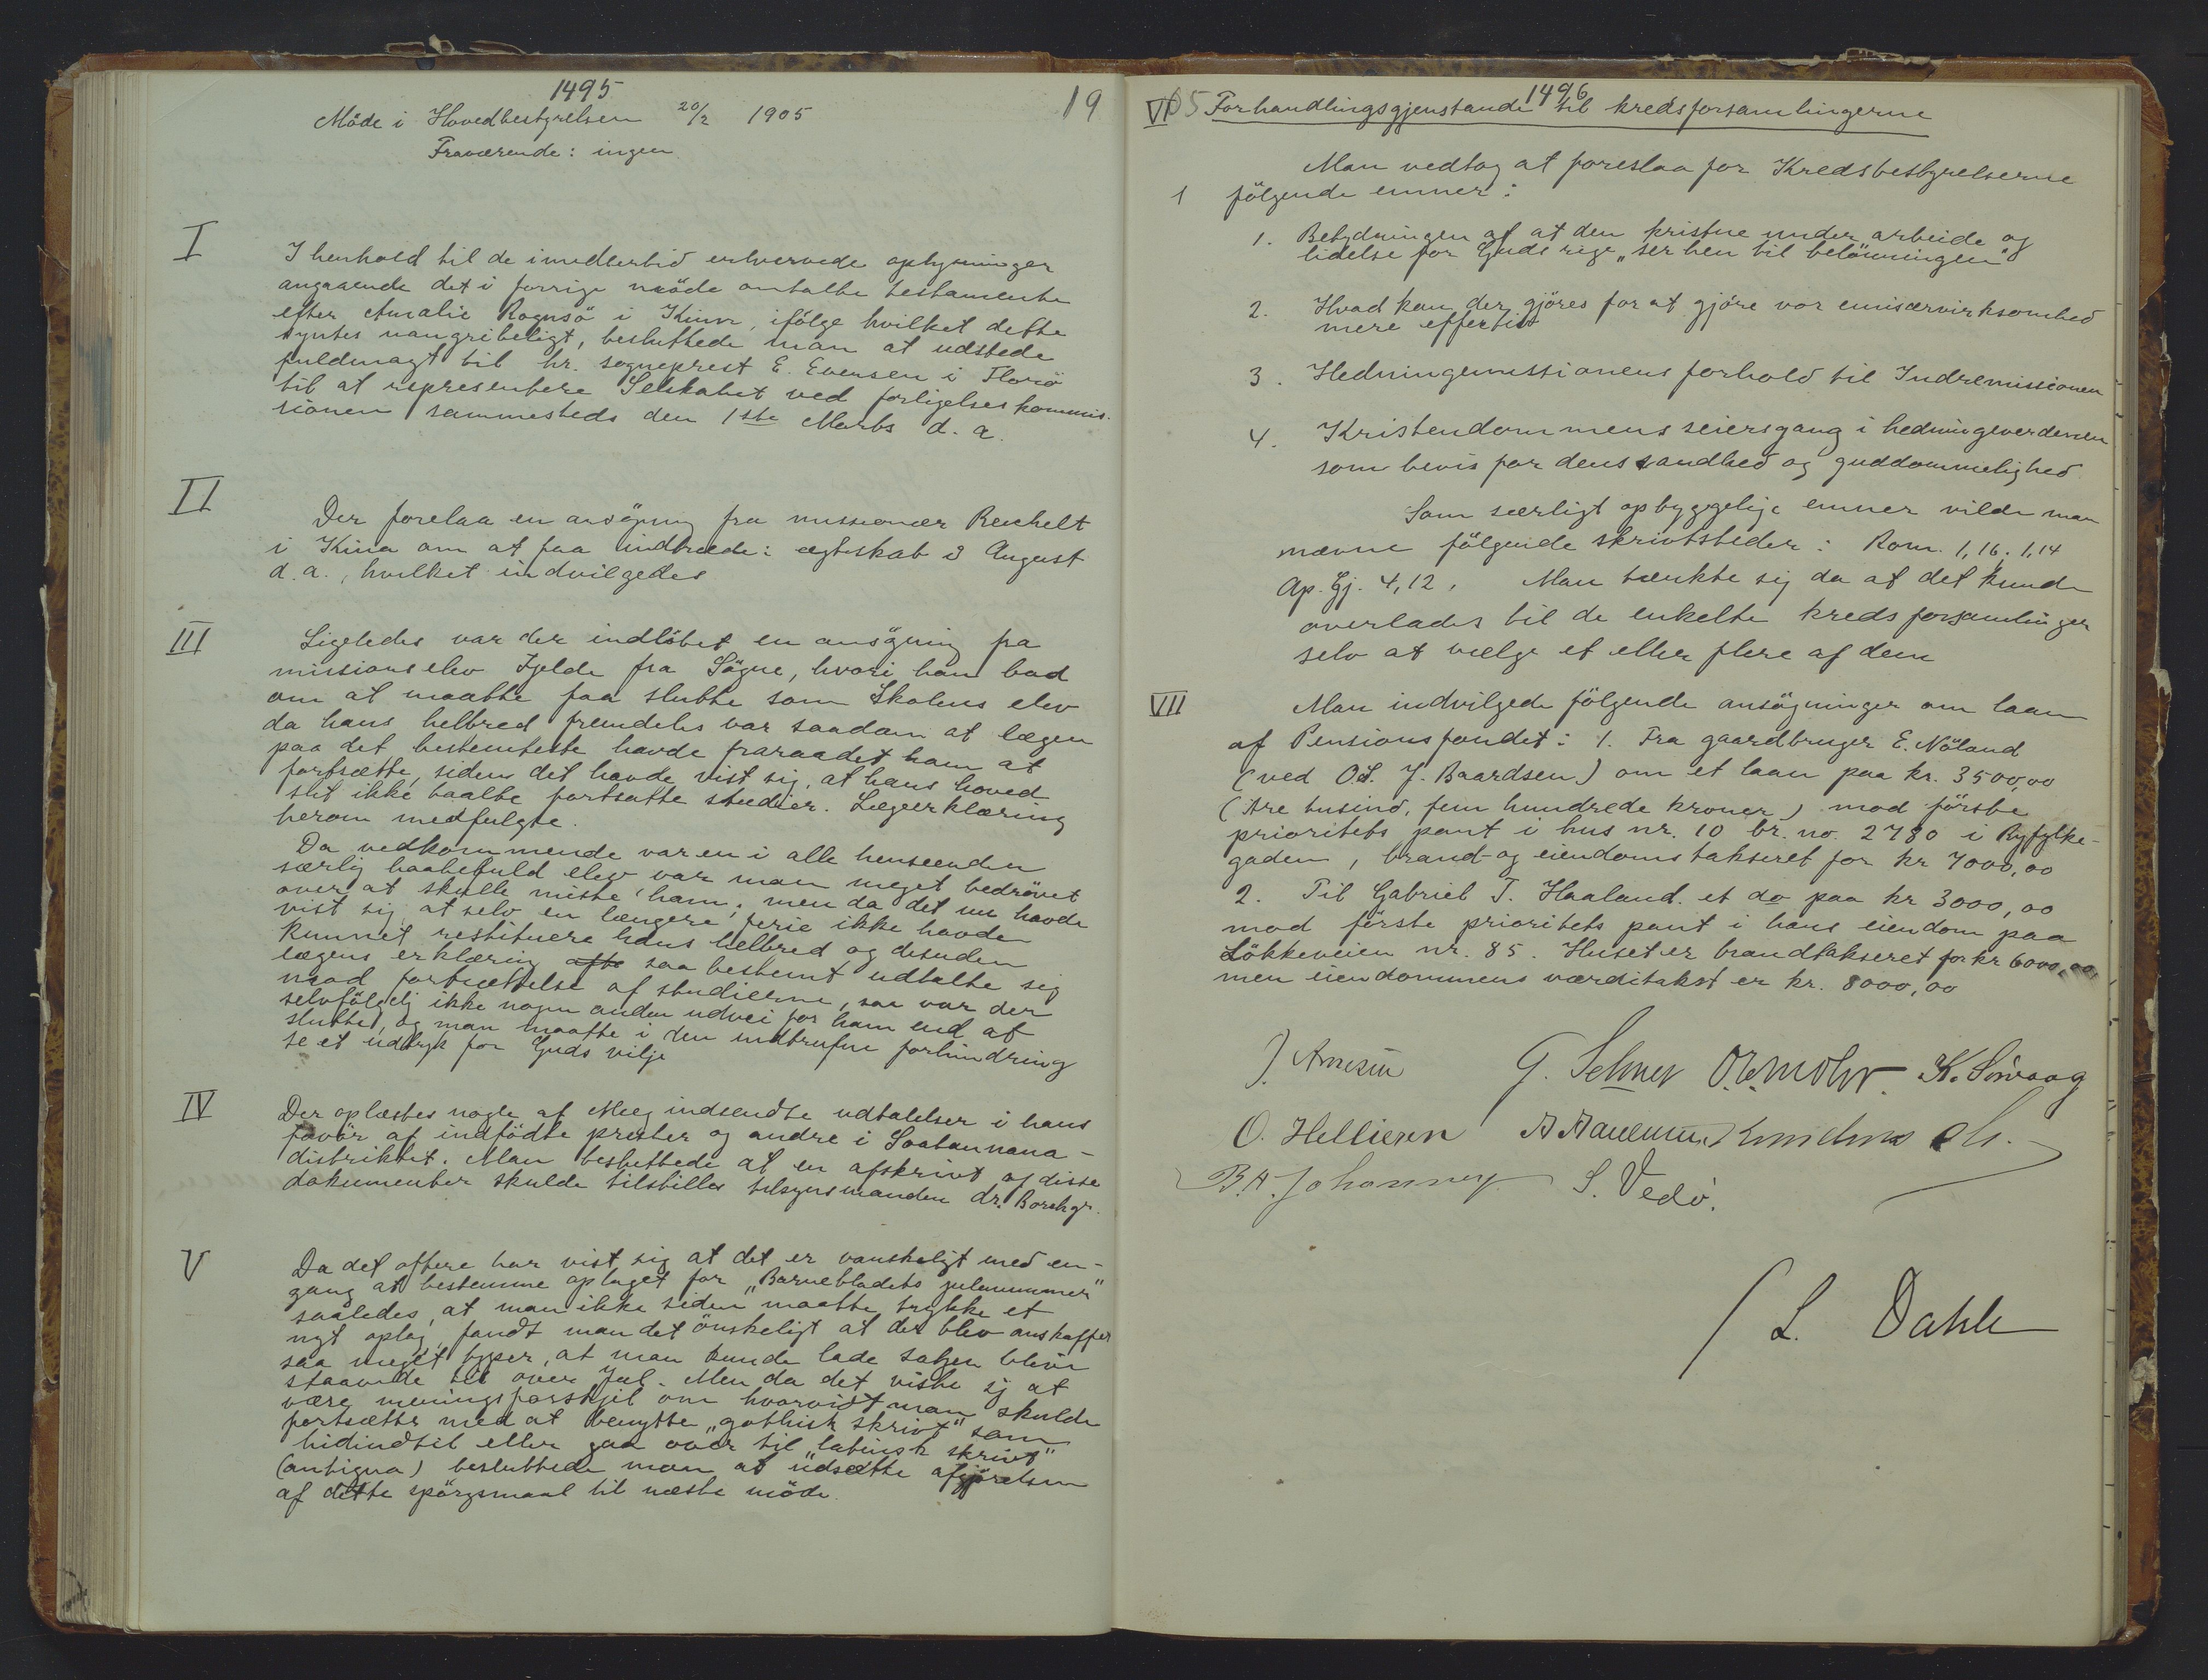 1495
19
Möde i Hovedbestyrelsen 20/2 1905
Fraværende: ingen
I
I henhold til de imidlertid erhvervede oplysninger
angaaende det i forrige möde omtalte testamente
efter Amalie Rognsö i Kinn, ifölge hvilket dette
syntes uangribeligt, besluttede man at udstede
fuldmagt til hr. sogneprest E. Evensen i Florö
til at representere Selskabet ved forligelseskommis-
sionen sammesteds den 1ste Marts d. a.
II
Der forelaa en ansögning fra missionær Reichelt
i Kina om at faa indtræde i ægteskab i August
d. a., hvilket indvilgedes
III
Ligeledes var der indlöbet en ansögning fra
missionselev Fjelde fra Sögne, hvori han bad
om at maatte faa slutte som Skolens elev
da hans helbred fremdeles var saadan at lægen
paa det bestemteste havde fraraadet ham at
fortsætte, siden det havde vist sig, at hans hoved
slet ikke taalte fortsatte studier. Lægeerklæring
herom medfulgte.
Da vedkommende var en i alle henseender
særlig haabefuld elev var man meget bedrövet
over at skulle miste ham; men da det nu havde
vist sig at selv en længere ferie ikke havde
kunnet restituere hans helbred og desuden
lægens erklæring saa bestemt udtalte sig
mod fortsættelse af studierne, saa var der
selvfölgelig ikke nogen anden udvei for ham end at
slutte, og man maatte i den indtrufne forhindring
se et udtryk for Guds vilje
IV
Der oplæstes nogle af Meeg indsendte udtalelser i hans
favör af indfödte prester og andre i Soatannana-
distriktet. Man besluttede at en afskrivt af disse
dokumenter skulde tilstilles tilsynsmanden dr. Borchgr.
V
Da det oftere har vist sig at det er vanskeligt med en-
gang at bestemme oplaget for "Barnebladets julenummer"
saaledes, at man ikke siden maatte trykke et
nyt oplag, fandt man det önskeligt at der blev anskaffet
saa meget typer, at man kunde lade satsen blive
staaende til over Jul. Men da det viste sig at
være meningsforskjel om hvorvidt man skulde
fortsætte med at benytte "gothisk skrivt" som
hidindtil eller gaa over til "latinsk skrivt"
(antiqua) besluttede man at udsætte afgjörelsen
af dette spörgsmaal til næste möde.
1496
VI Forhandlingsgjenstande til kredsforsamlingerne
Man vedtog at foreslaa for Kredsbestyrelserne
1 fölgende emner:
1. Betydningen af at den kristne under arbeide og
lidelse for Guds rige "ser hen til belönningen"
2. Hvad kan der gjöres for at gjöre vor emisærvirksomhed
mere effektiv
3. Hedningemissionens forhold til Indremissionen
4. Kristendommens seiersgang i hedningeverdenen
som bevis for dens sandhed og guddommelighed
Som særligt opbyggelige emner vilde man
nævne fölgende skrivtsteder: Rom. 1,16. 1,14
Ap. Gj. 4,12. Man tænkte sig da at det kunde
overlades til de enkelte kredsforsamlinger
selv at vælge et eller flere af dem
VII
Man indvilgede fölgende ansögninger om laan
af Pensionsfondet: 1. Fra gaardbruger E. Nöland
(ved O.S. J. Baardsen) om et laan paa kr. 3500,00
(tre tusind, fem hundrede kroner) mod förste
prioritets pant i hus nr. 10 br. no. 2780 i Ryfylke-
gaden, brand- og eiendomstakseret for kr 7000,00
2. Til Gabriel T. Haaland. et do paa kr 3000,00
mod förste prioritets pant i hans eiendom paa
Lökkeveien nr. 85. Huset er brandtakseret for kr 6000,00
men eiendommens værditakst er kr. 8000,00
J. Arnesen G. Selmer K. Sörvaag
O. Hellieren
B.A. Johannes S. Vedö.
L. Dahle